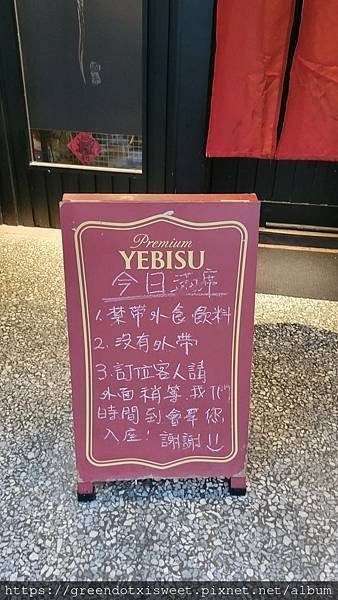 Premium
YEBISU
今日滿席
1. 禁帶外食.飲料
2. 沒有外帶
3. 訂位客人請
外面稍等.我們
時間到會幫您
入座! 謝謝!!
https://greendotxisweet.pixnet.net/album